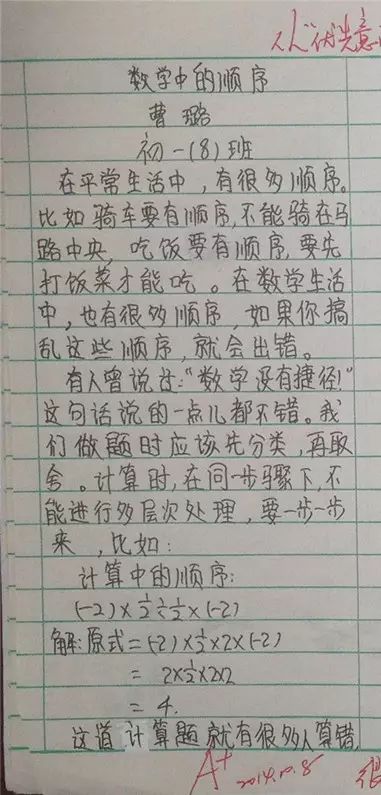 从"优先意
数学中的顺序
曹璐
初一(8)班
在平常生活中，有很多顺序。
比如骑车要有顺序，不能骑在马
路中央，吃饭要有顺序，要先
打饭菜才能吃。在数学生活
中，也有很多顺序，如果你搞
乱这些顺序，就会出错。
有人曾说过："数学没有捷径!"
这句话说的一点儿都不错。我
们做题时应该先分类，再取
舍。计算时，在同一步骤下，不
能进行多层次处理，要一步一步
来，比如：
计算中的顺序：
(-2)×½÷½×(-2)
解：原式=(-2)×½×2×(-2)
=2×½×2×2
=4.
这道计算题就有很多人算错，
A+
2014.10.8
很